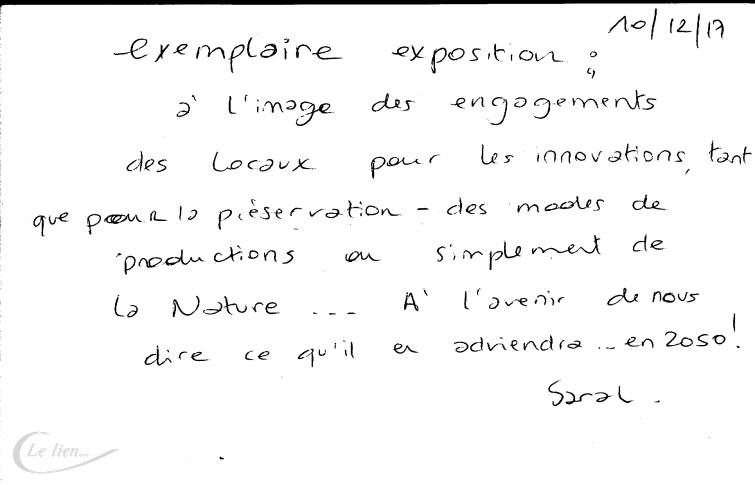 10/12/17
exemplaire exposition ;
à l'image des engagements
des locaux pour les innovations, tant
que pour la préservation - des modes de
productions ou simplement de
la Nature ... A' l'avenir de nous
dire ce qu'il en adviendra... en 2050!
Le lien...